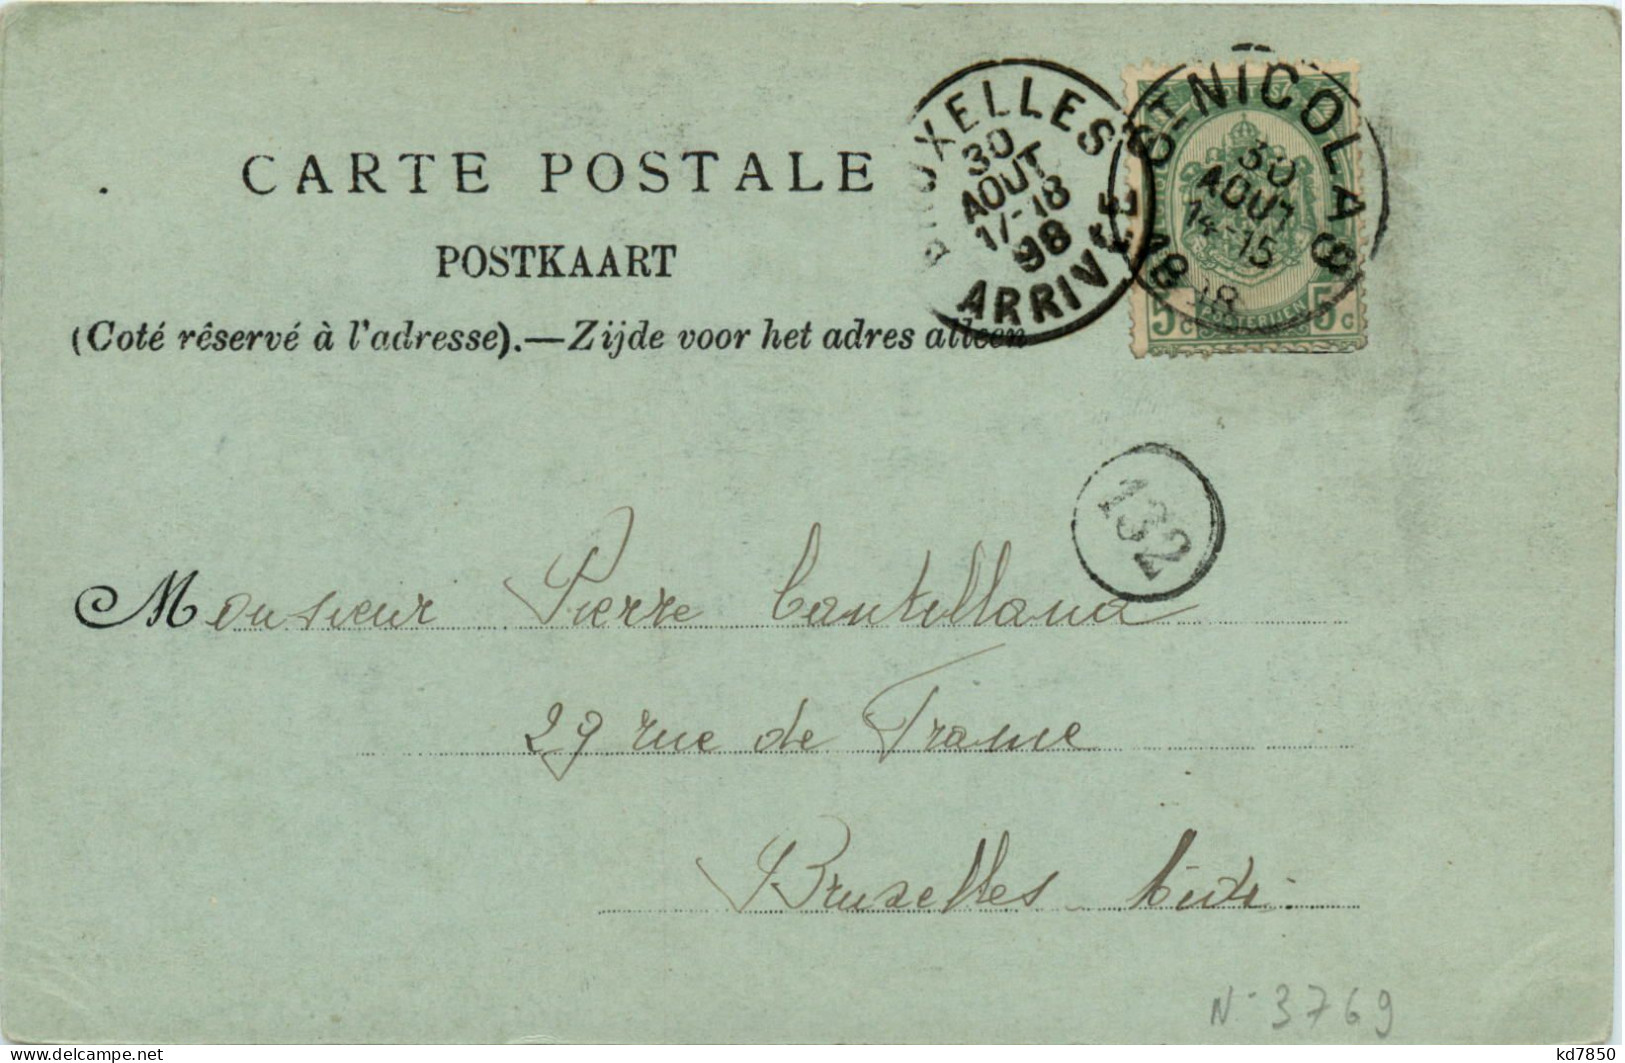 CARTE POSTALE
POSTKAART
(Coté réservé à l'adresse).—Zijde voor het adres alleen
BRUXELLES
30
AOUT
17-18
98
ARRIVÉE
ST NICOLAS
30
AOUT
14-15
1898
5c 5c
132
Monsieur Pierre Cantillana
29 rue de France
Bruxelles Midi.
N° 3769
kd7850